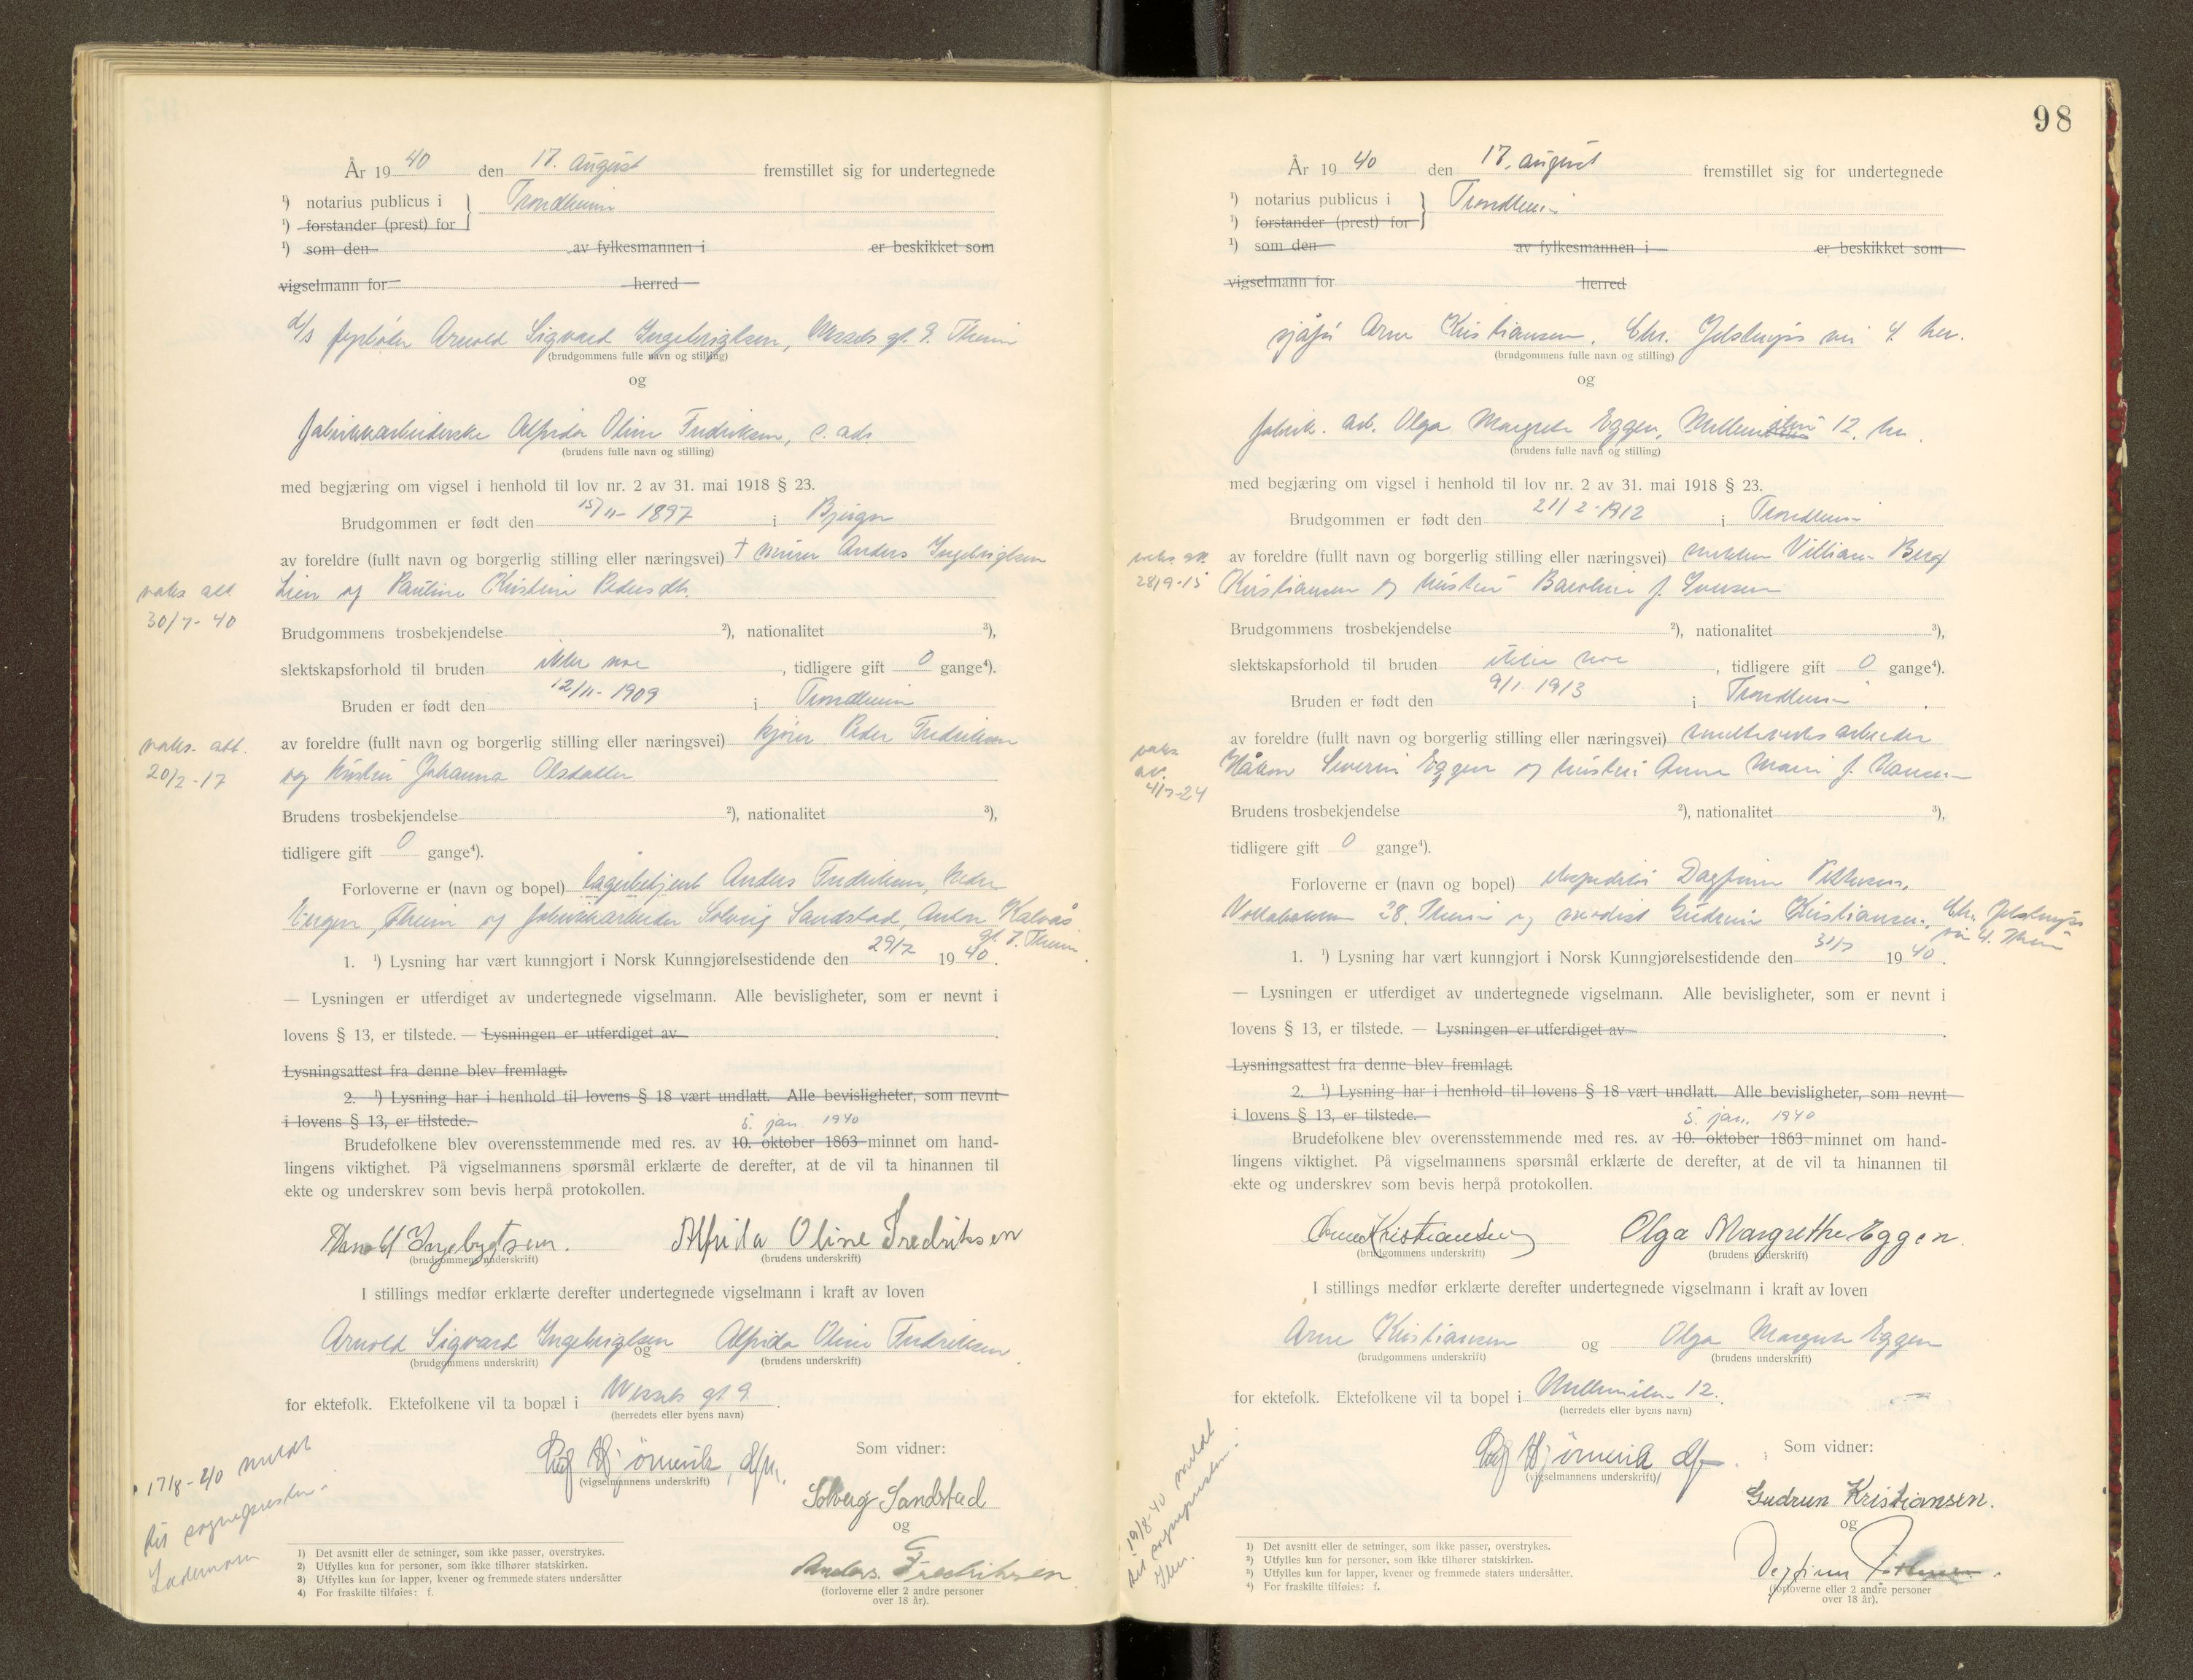 År 19 40 den 17. august fremstillet sig for undertegnede
¹) notarius publicus i } Trondheim
¹) forstander (prest) for
¹) som den av fylkesmannen i er beskikket som
vigselmann for herred
d/s fyrbøter Arnold Sigvard Ingebrigtsen, Wessels gt. 9. Theim
(brudgommens fulle navn og stilling)
og
fabrikkarbeiderske Alfrida Oline Fredriksen, s. ads
(brudens fulle navn og stilling)
med begjæring om vigsel i henhold til lov nr. 2 av 31. mai 1918 § 23.
Brudgommen er født den 15/11- 1897 i Bjugn
av foreldre (fullt navn og borgerlig stilling eller næringsvei) † murer Anders Ingebrigtsen
Lien og Pauline Kristine Pedersdtr.
vaks. att.
30/7- 40
Brudgommens trosbekjendelse ²), nationalitet ³),
slektskapsforhold til bruden ikke noe, tidligere gift 0 gange⁴).
Bruden er født den 12/11- 1909 i Trondheim
av foreldre (fullt navn og borgerlig stilling eller næringsvei) kjører Peder Fredriksen
og hustru Johanna Olsdatter
vaks. att.
20/2-17
Brudens trosbekjendelse ²), nationalitet ³),
tidligere gift 0 gange⁴).
Forloverne er (navn og bopel) lagerbetjent Anders Fredriksen, Nedre
Bergen, Theim og fabrikkarbeider Solveig Sandstad, Anton Kalvås
gt. 7. Theim.
1. ¹) Lysning har vært kunngjort i Norsk Kunngjørelsestidende den 29/7 19 40.
— Lysningen er utferdiget av undertegnede vigselmann. Alle bevisligheter, som er nevnt i
lovens § 13, er tilstede. — Lysningen er utferdiget av
Lysningsattest fra denne blev fremlagt.
2. ¹) Lysning har i henhold til lovens § 18 vært undlatt. Alle bevisligheter, som nevnt
i lovens § 13, er tilstede.
5. jan. 1940
Brudefolkene blev overensstemmende med res. av 10. oktober 1863 minnet om hand-
lingens viktighet. På vigselmannens spørsmål erklærte de derefter, at de vil ta hinannen til
ekte og underskrev som bevis herpå protokollen.
Arnold Ingebrigtsen. Alfrida Oline Fredriksen
(brudgommens underskrift) (brudens underskrift)
I stillings medfør erklærte derefter undertegnede vigselmann i kraft av loven
Arnold Sigvard Ingebrigtsen og Alfrida Oline Fredriksen
(brudgommens underskrift) (brudens underskrift)
for ektefolk. Ektefolkene vil ta bopæl i Wessels gt. 9.
(herredets eller byens navn)
17/8-40 meldt
til sognepresten i
Lademoen
(vigselmannens underskrift)
Som vidner:
Solveig Sandstad
og
Anders Fredriksen
(forloverne eller 2 andre personer
over 18 år).
1) Det avsnitt eller de setninger, som ikke passer, overstrykes.
2) Utfylles kun for personer, som ikke tilhører statskirken.
3) Utfylles kun for lapper, kvener og fremmede staters undersåtter
4) For fraskilte tilføies: f.
98
År 19 40 den 17. august fremstillet sig for undertegnede
¹) notarius publicus i } Trondheim
¹) forstander (prest) for
¹) som den av fylkesmannen i er beskikket som
vigselmann for herred
sjåfør Arne Kristiansen, Chr. Jelstrups vei 4. her.
(brudgommens fulle navn og stilling)
og
fabrik. arb. Olga Margrete Eggen, Mellemilen 12. her.
(brudens fulle navn og stilling)
med begjæring om vigsel i henhold til lov nr. 2 av 31. mai 1918 § 23.
Brudgommen er født den 21/2-1912 i Trondheim
av foreldre (fullt navn og borgerlig stilling eller næringsvei) snekker Villiam Berg
Kristiansen og hustru Baroline f. Iversen
vaks. att.
28/9-15
Brudgommens trosbekjendelse ²), nationalitet ³),
slektskapsforhold til bruden ikke noe, tidligere gift 0 gange⁴).
Bruden er født den 9/1-1913 i Trondheim.
av foreldre (fullt navn og borgerlig stilling eller næringsvei) smelteverks arbeider
Håkon Severin Eggen og hustru Anna Marie f. Hansen
vaks
att.
4/7-24
Brudens trosbekjendelse ²), nationalitet ³),
tidligere gift 0 gange⁴).
Forloverne er (navn og bopel) ekspeditør Dagfinn
28. Theim og Gudrun Kristiansen, Chr. Jelstrups
vei 4. Theim
1. ¹) Lysning har vært kunngjort i Norsk Kunngjørelsestidende den 31/7 19 40.
— Lysningen er utferdiget av undertegnede vigselmann. Alle bevisligheter, som er nevnt i
lovens § 13, er tilstede. — Lysningen er utferdiget av
Lysningsattest fra denne blev fremlagt.
2. ¹) Lysning har i henhold til lovens § 18 vært undlatt. Alle bevisligheter, som nevnt
i lovens § 13, er tilstede.
5. jan. 1940
Brudefolkene blev overensstemmende med res. av 10. oktober 1863 minnet om hand-
lingens viktighet. På vigselmannens spørsmål erklærte de derefter, at de vil ta hinannen til
ekte og underskrev som bevis herpå protokollen.
Arne Kristiansen Olga Margrethe Eggen.
(brudgommens underskrift) (brudens underskrift)
I stillings medfør erklærte derefter undertegnede vigselmann i kraft av loven
Arne Kristiansen og Olga Margrete Eggen
(brudgommens underskrift) (brudens underskrift)
for ektefolk. Ektefolkene vil ta bopel i Mellemilen 12.
(herredets eller byens navn)
19/8-40 meldt
til sognepresten i
Ilen.
(vigselmannens underskrift)
Som vidner:
Gudrun Kristiansen.
og
Dagfinn
(forloverne eller 2 andre personer
over 18 år).
¹) Det avsnitt eller de setninger, som ikke passer, overstrykes.
²) Utfylles kun for personer, som ikke tilhører statskirken.
³) Utfylles kun for lapper, kvener og fremmede staters undersåtter.
⁴) For fraskilte tilføies: f.